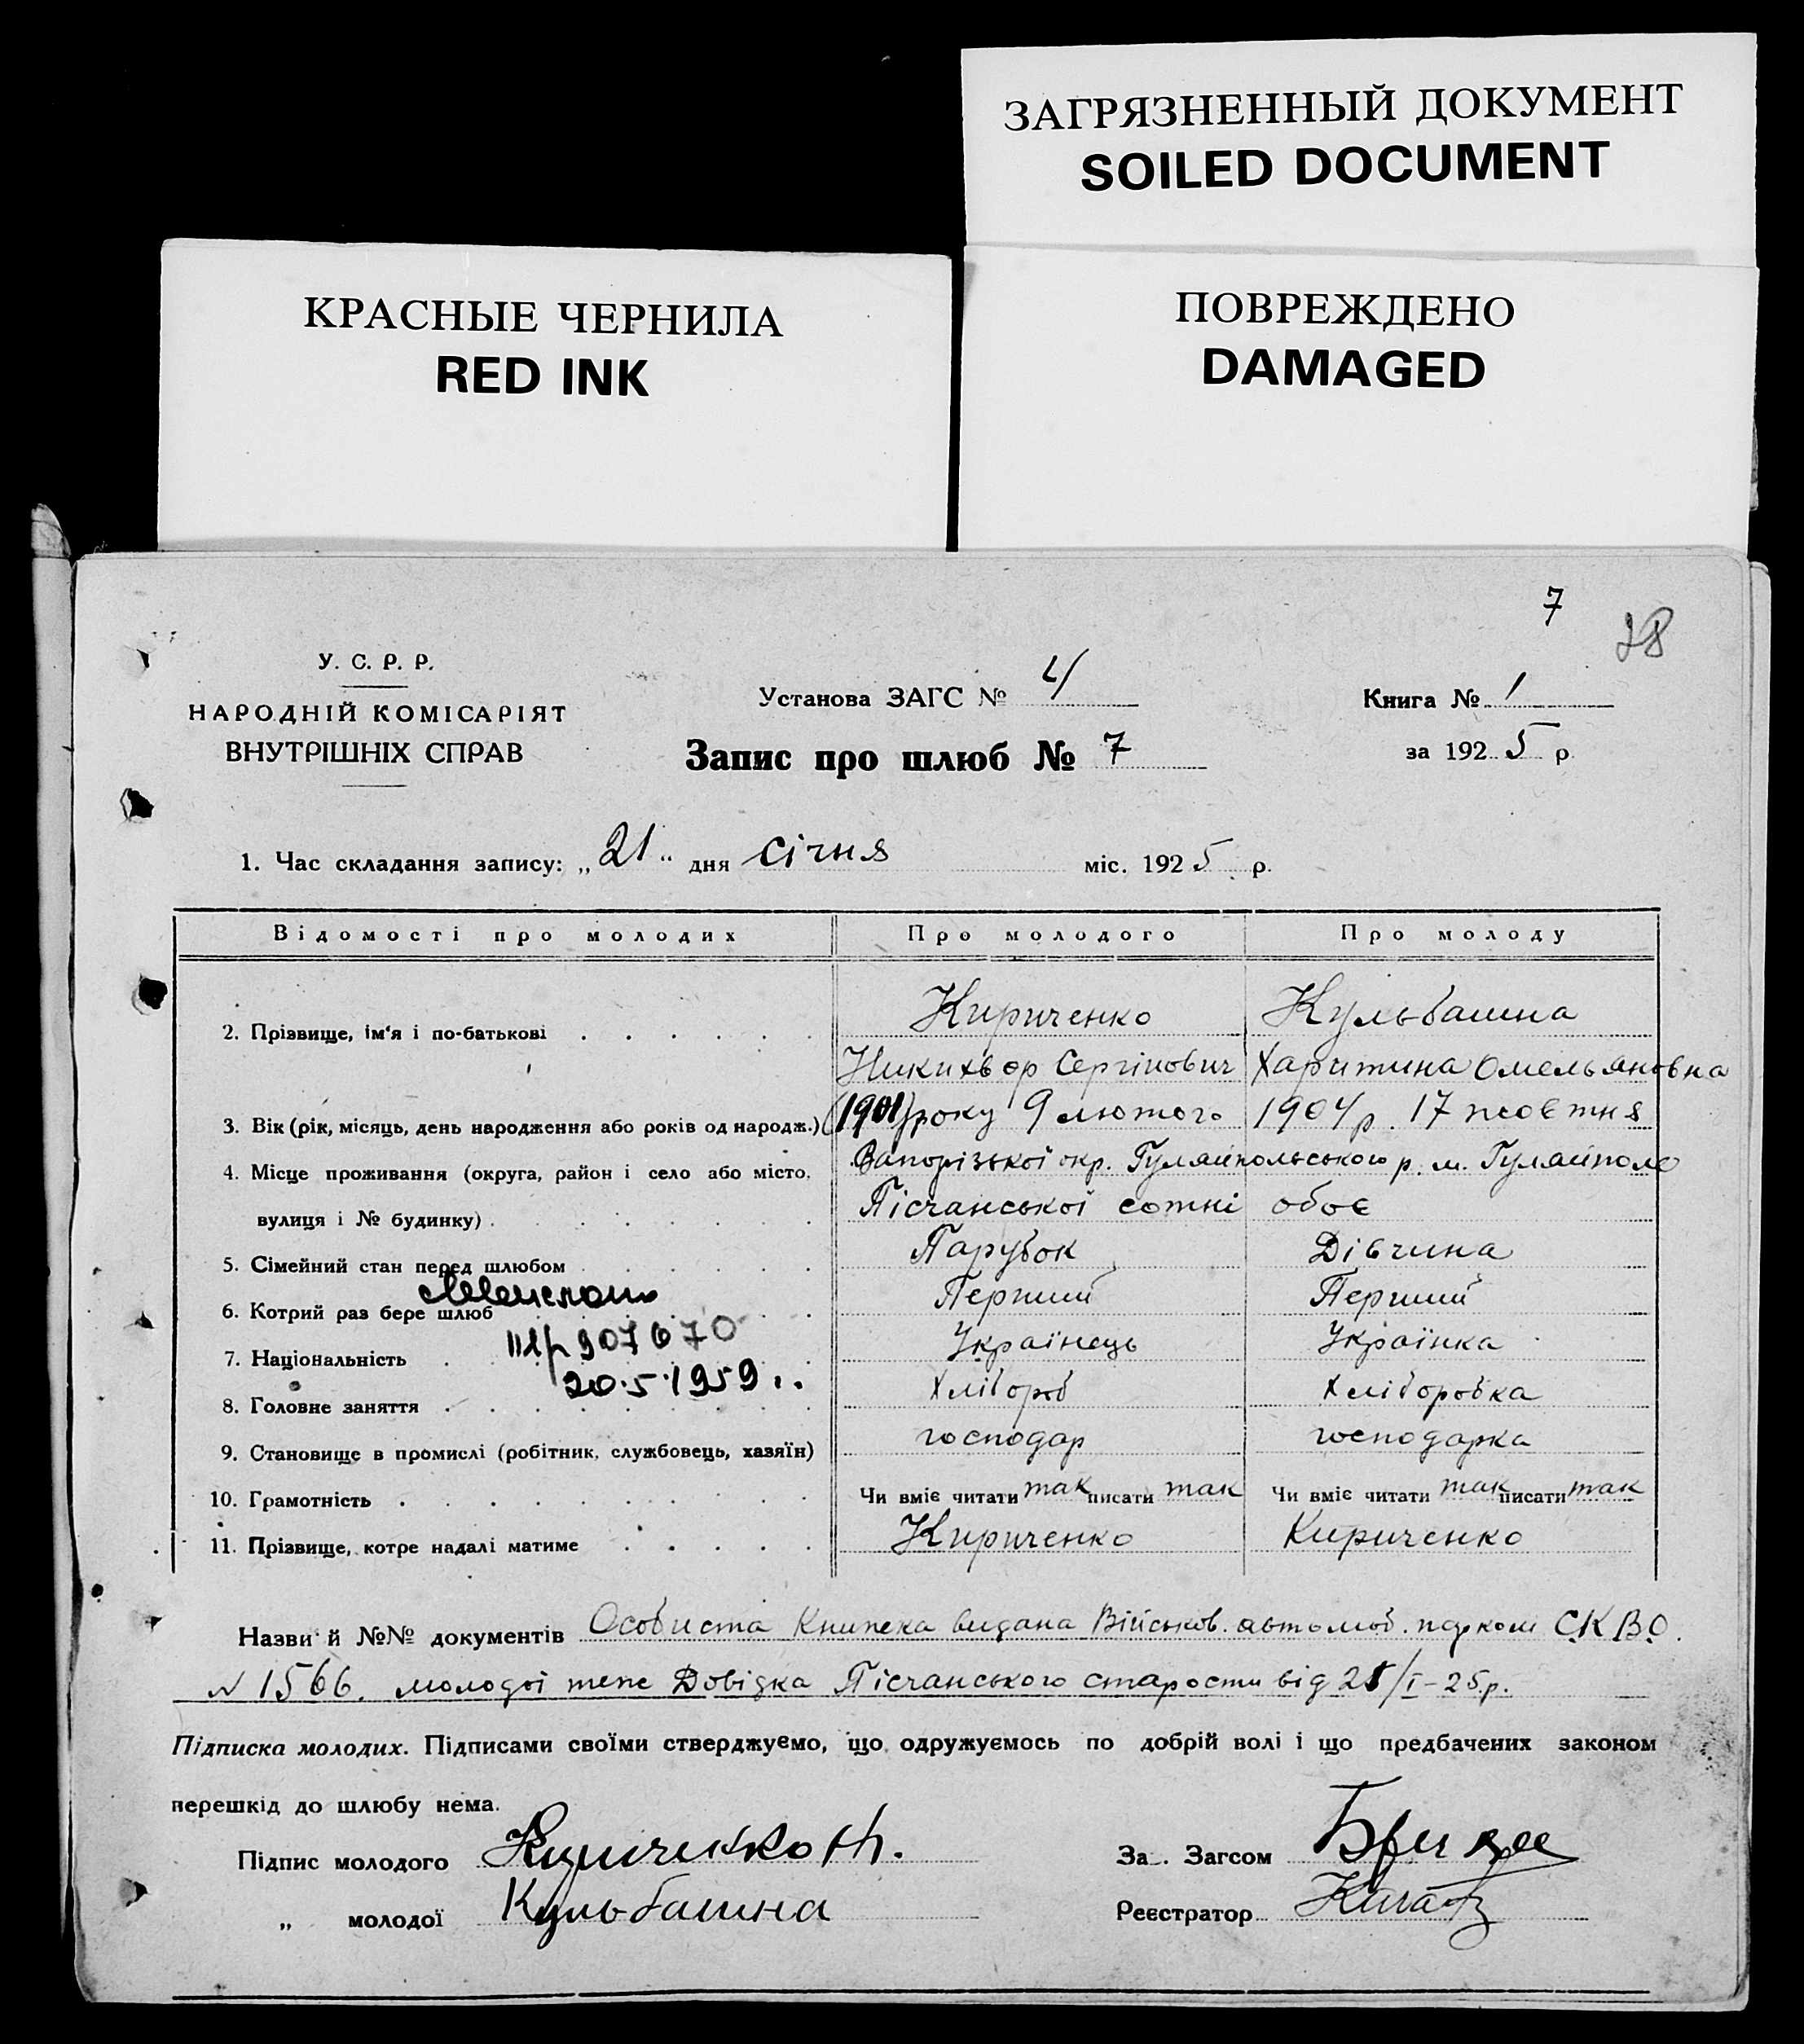 ЗАГРЯЗНЕННЫЙ ДОКУМЕНТ
SOILED DOCUMENT
КРАСНЫЕ ЧЕРНИЛА
RED INK
ПОВРЕЖДЕНО
DAMAGED
7
28
У. С. Р. Р.
НАРОДНІЙ КОМІСАРІЯТ
ВНУТРІШНІХ СПРАВ
Установа ЗАГС № 4
Запис про шлюб № 7
Книга № 1
за 1925 р.
1. Час складання запису: „21" дня січня міс. 1925 р.
Відомості про молодих Про молодого Про молоду
2. Прізвище, ім'я і по-батькові Кириченко Кульбашна
Никихвор Сергійович Харитина Омельяновна
3. Вік (рік, місяць, день народження або років од народж.) (1901) року 9 лютого 1904 р. 17 жовтня
4. Місце проживання (округа, район і село або місто, Запорізької окр. Гуляйпольського р. м. Гуляйполе
вулиця і № будинку) Пісчанської сотні обоє
5. Сімейний стан перед шлюбом Парубок Дівчина
6. Котрий раз бере шлюб Перший Перший
7. Національність 907670 Українець Українка
20.5.1959 г.
8. Головне заняття Хлібороб Хліборобка
9. Становище в промислі (робітник, службовець, хазяїн) господар господарка
10. Грамотність Чи вміє читати так писати так Чи вміє читати так писати так
11. Прізвище, котре надалі матиме Кириченко Кириченко
Назви й №№ документів Особиста Книжка видана Військов. автомоб. парком С.К.В.О.
№ 1566. молодої теж Довідка Пісчанського старости від 21/I-25.р.
Підписка молодих. Підписами своїми стверджуємо, що одружуємось по добрій волі і що предбачених законом
перешкід до шлюбу нема.
Підпис молодого Кириченко Н. За. Загсом
„ молодої Кульбашна Реєстратор